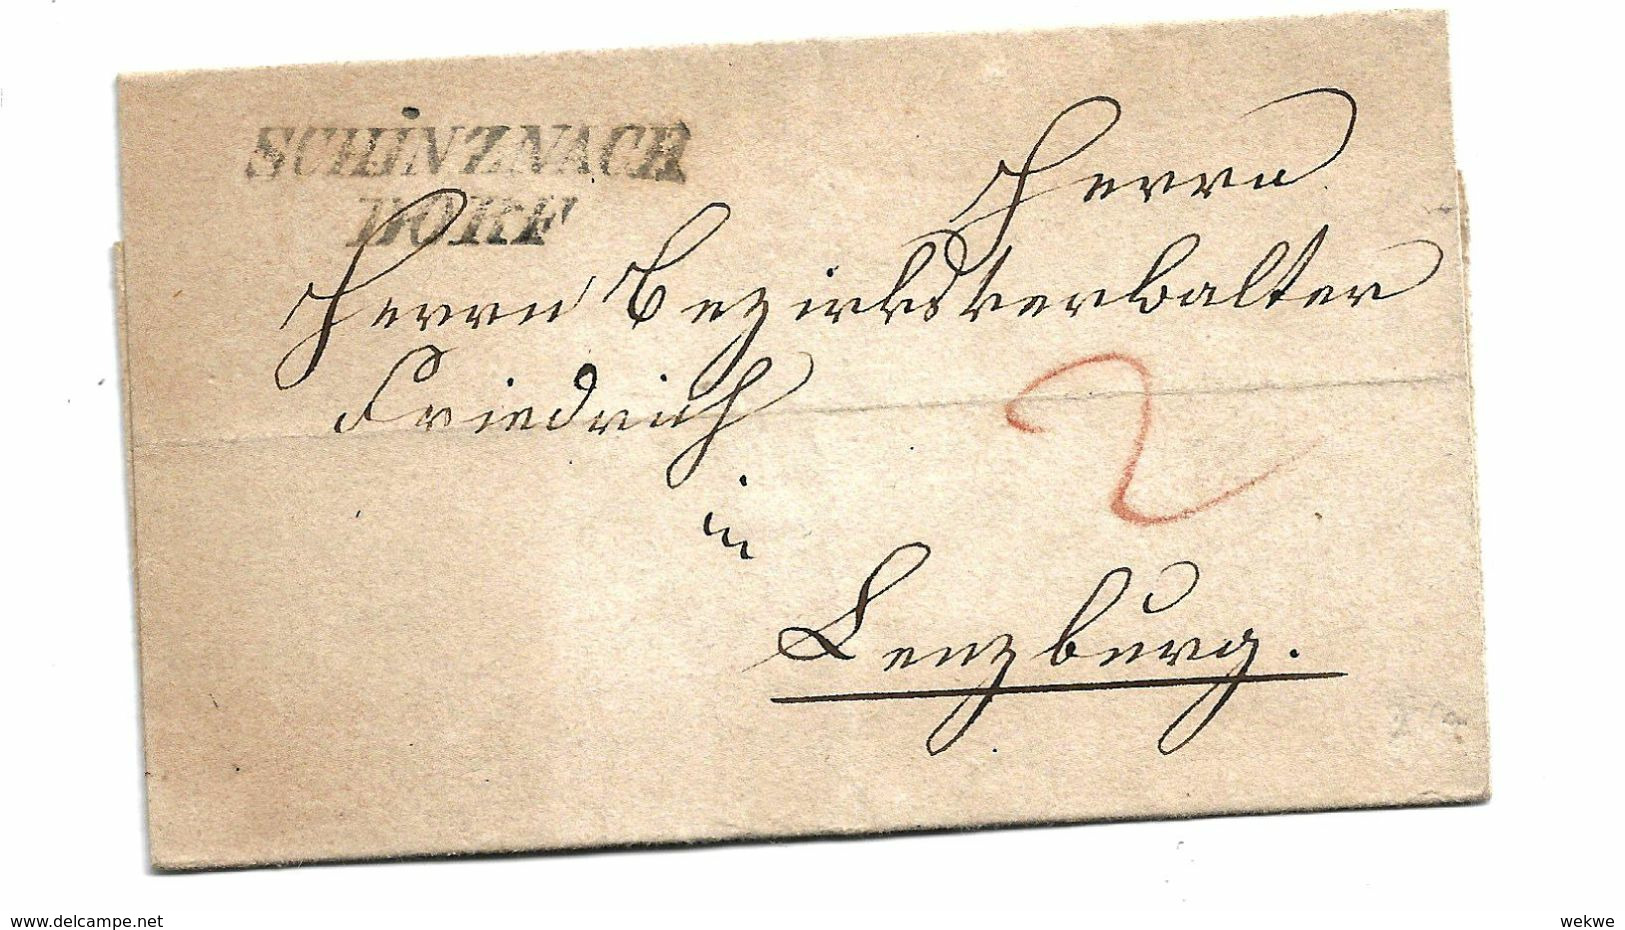 SCHINZNACH
DORF
Herrn
Herrn Bezirksverwalter
Friedrich
2
in
Lenzburg.
www.delcampe.net
wekwe